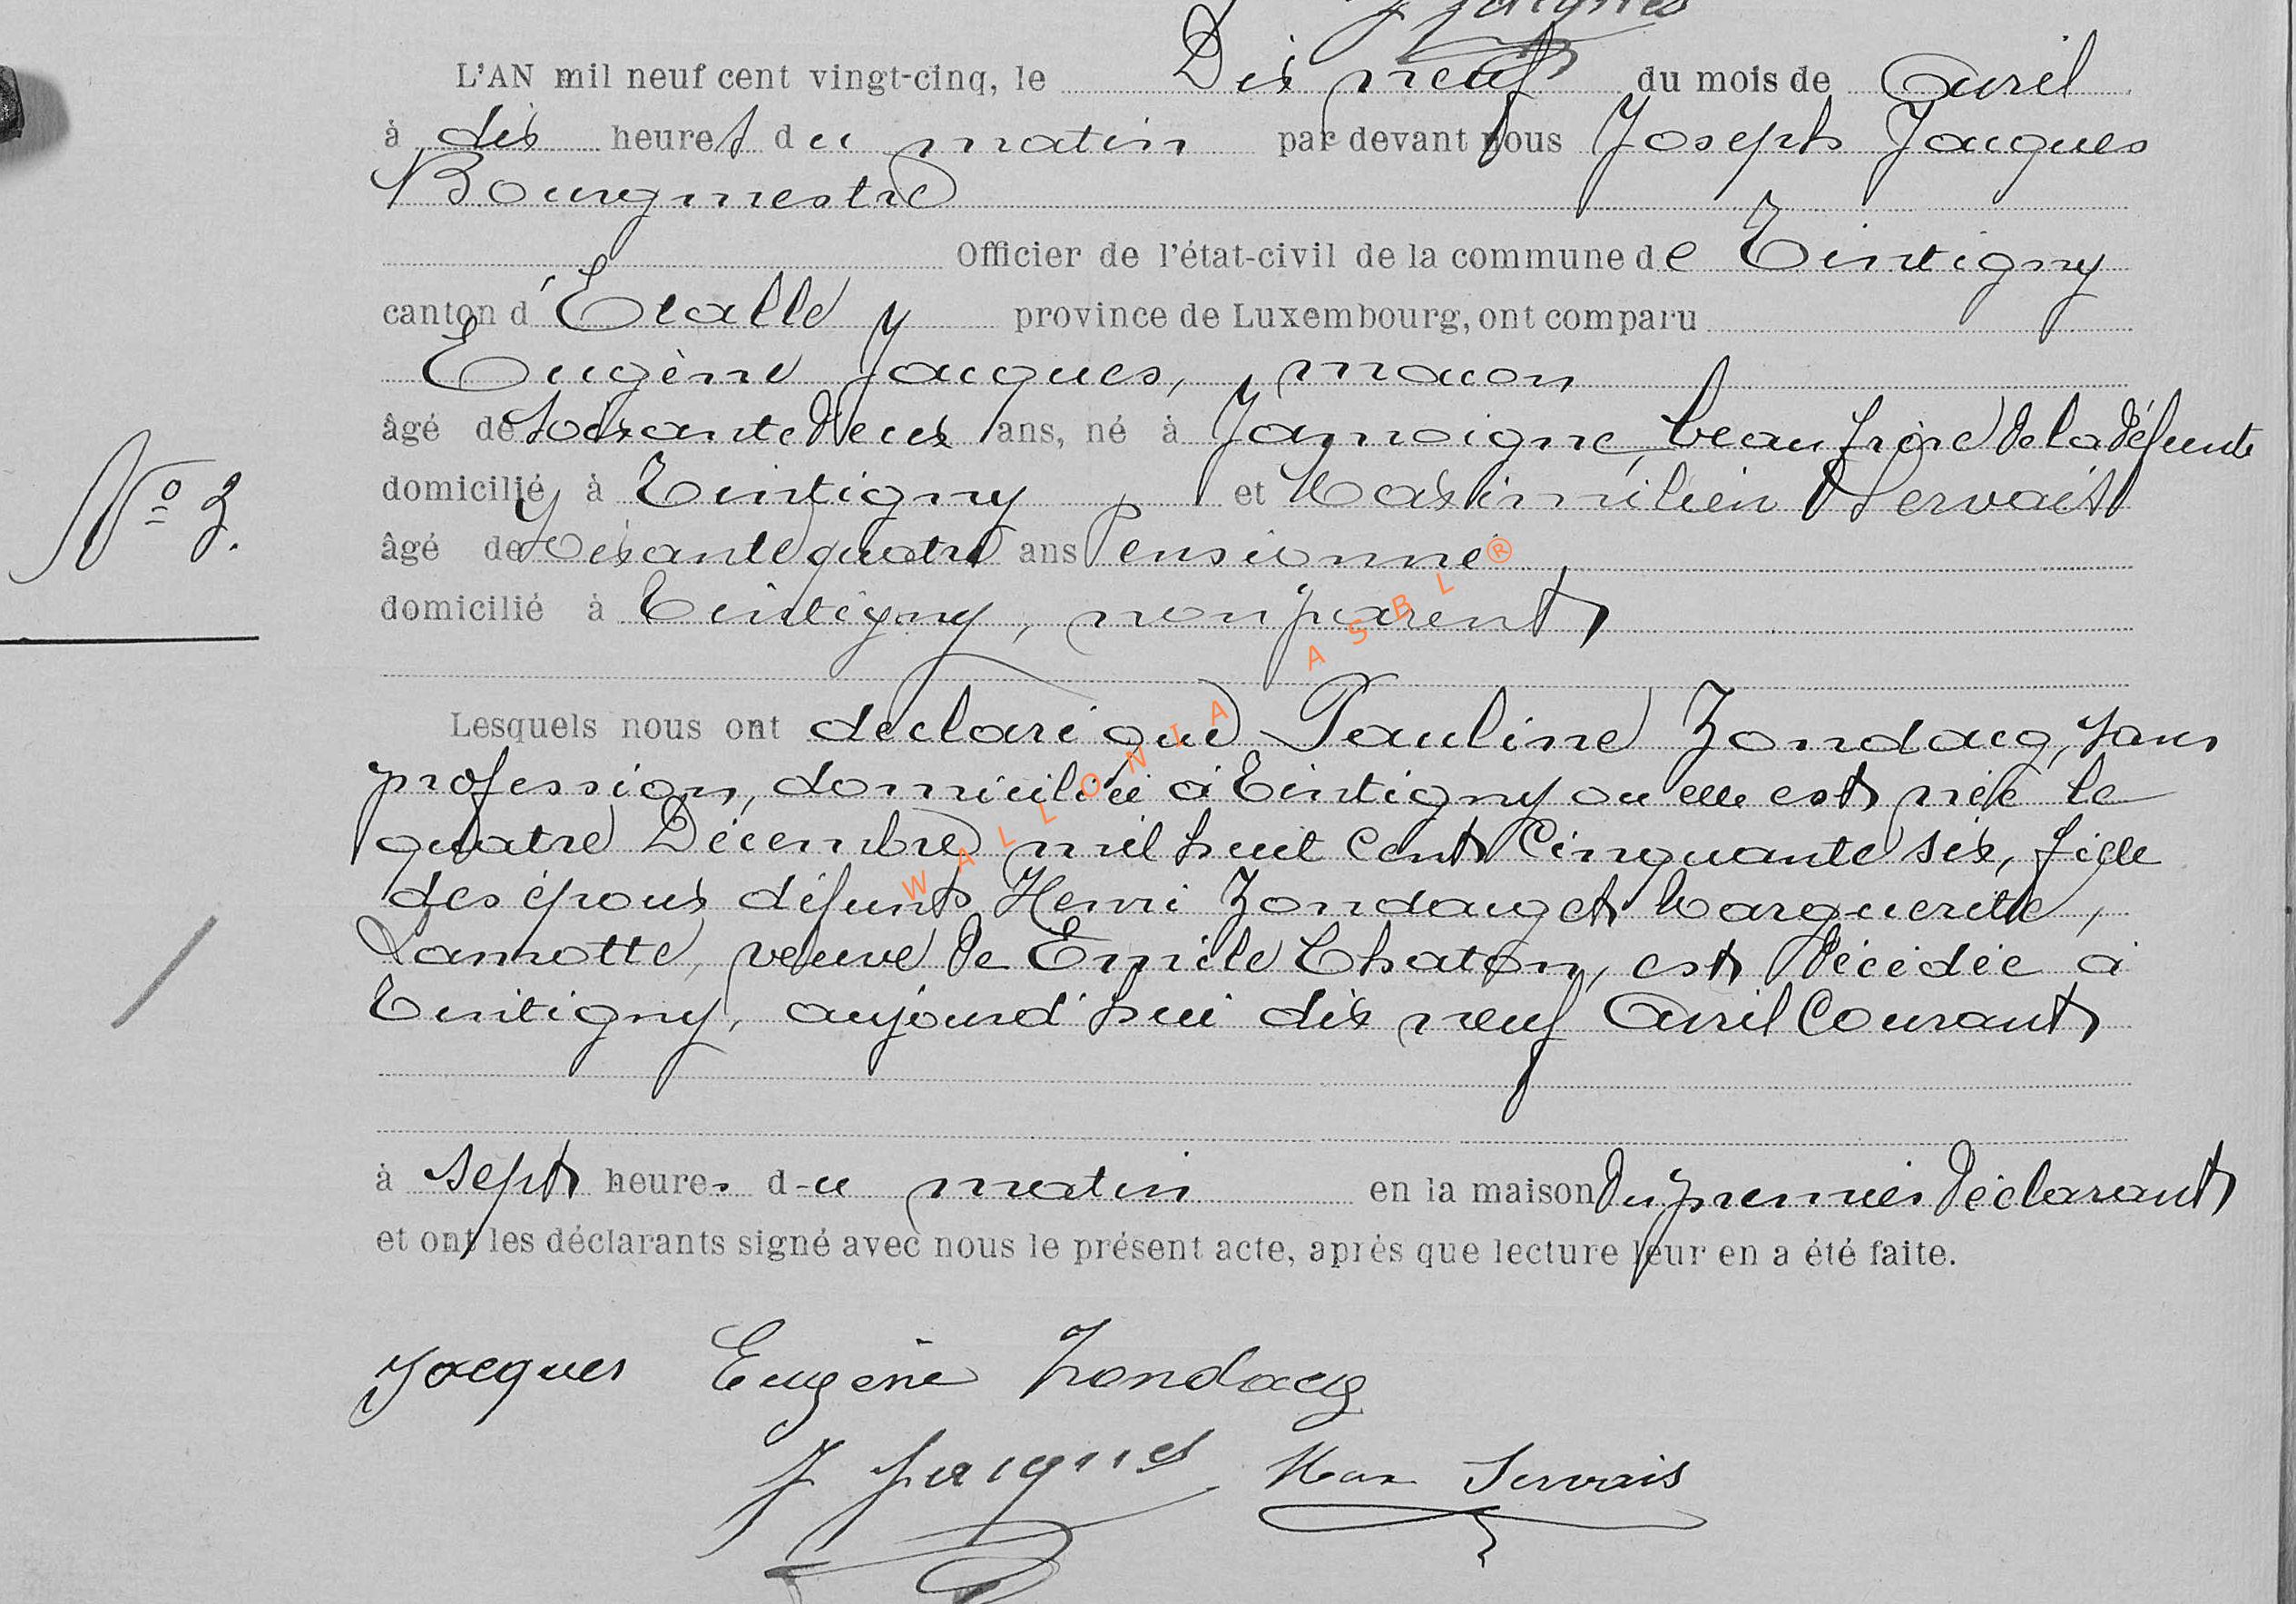 L'AN mil neuf cent vingt-cinq, le Dix neuf du mois de Avril
à dix heures du matin par devant nous Joseph Jacques
Bourgmestre
Officier de l'état-civil de la commune de Tintigny
canton d'Etalle province de Luxembourg, ont comparu
Eugène Jacques, macon
âgé de Soixante Deux ans, né à Jamoigne, beau frère de la défunte
domicilié à Tintigny et Maximilien Servais
âgé de Soixante quatre ans Pensionné
N° 3.
domicilié à Tintigny, non parent
Lesquels nous ont declaré que Pauline Zondacq, sans
profession, domiciliée à Tintigny ou elle est née le
quatre Décembre mil huit cent Cinquante six, fille
des époux défunts Henri Zondacq et Marguerite,
Lamotte, veuve de Emile Chaton, est décédée à
Tintigny, aujourd'hui dix neuf Avril Courant
à sept heures du matin en la maison du premier déclarant
et ont les déclarants signé avec nous le présent acte, après que lecture leur en a été faite.
Jacques Eugène Zondacq
J Jacques Max Servais
WALLONIA ASBL®